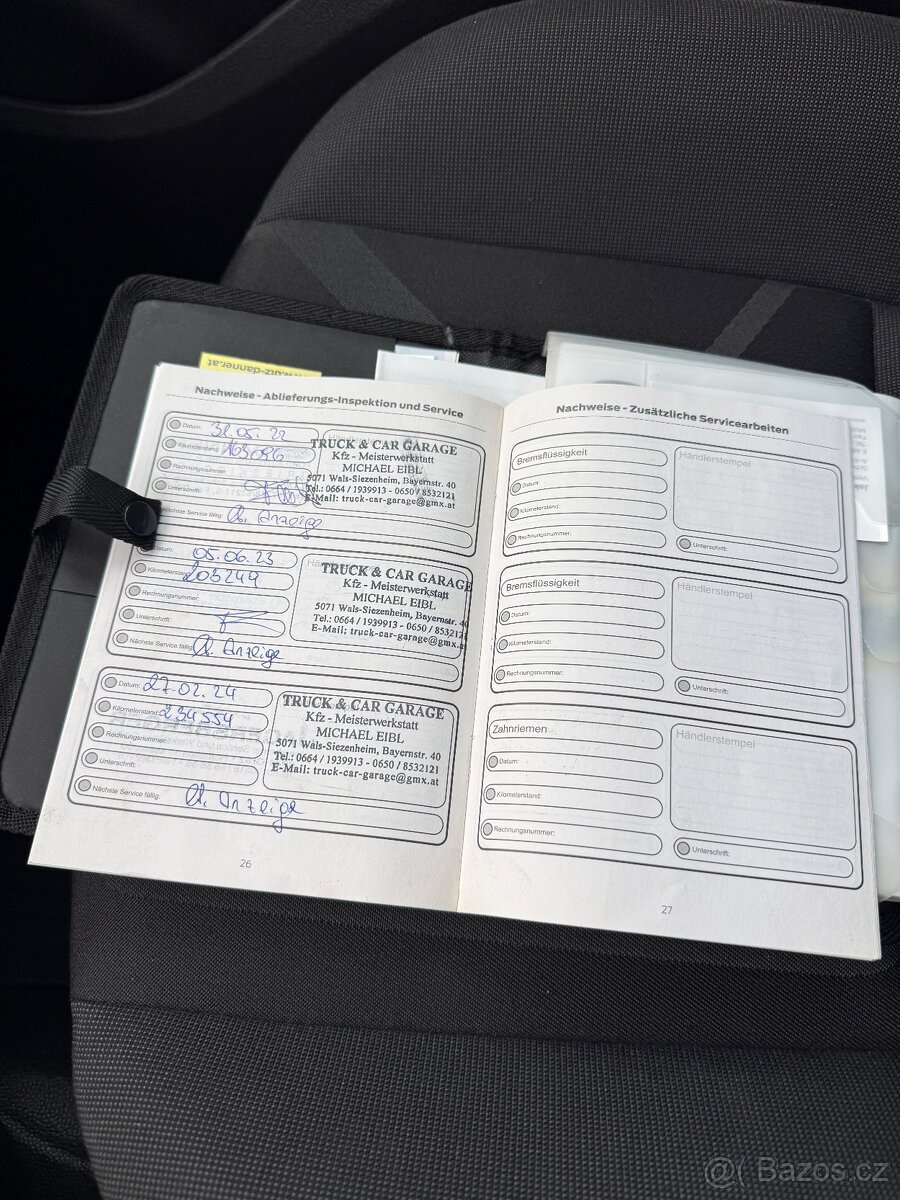 Nachweise - Ablieferungs-Inspektion und Service
Datum: 31.05.22
Kilometerstand: 163096
Rechnungsnummer:
Unterschrift:
Nächste Service fällig: lt. Anzeige
TRUCK & CAR GARAGE
Kfz - Meisterwerkstatt
MICHAEL EIBL
5071 Wals-Siezenheim, Bayernstr. 40
Tel.: 0664 / 1939913 - 0650 / 8532121
E-Mail: truck-car-garage@gmx.at
Datum: 05.06.23
Kilometerstand: 203249
Rechnungsnummer:
Unterschrift:
Nächste Service fällig: lt. Anzeige
TRUCK & CAR GARAGE
Kfz - Meisterwerkstatt
MICHAEL EIBL
5071 Wals-Siezenheim, Bayernstr. 40
Tel.: 0664 / 1939913 - 0650 / 8532121
E-Mail: truck-car-garage@gmx.at
Datum: 27.02.24
Kilometerstand: 234554
Rechnungsnummer:
Unterschrift:
Nächste Service fällig: lt. Anzeige
TRUCK & CAR GARAGE
Kfz - Meisterwerkstatt
MICHAEL EIBL
5071 Wals-Siezenheim, Bayernstr. 40
Tel.: 0664 / 1939913 - 0650 / 8532121
E-Mail: truck-car-garage@gmx.at
26
Nachweise - Zusätzliche Servicearbeiten
Bremsflüssigkeit
Datum:
Kilometerstand:
Rechnungsnummer:
Händlerstempel
Unterschrift:
Bremsflüssigkeit
Datum:
Kilometerstand:
Rechnungsnummer:
Händlerstempel
Unterschrift:
Zahnriemen
Datum:
Kilometerstand:
Rechnungsnummer:
Händlerstempel
Unterschrift:
27
Bazos.cz